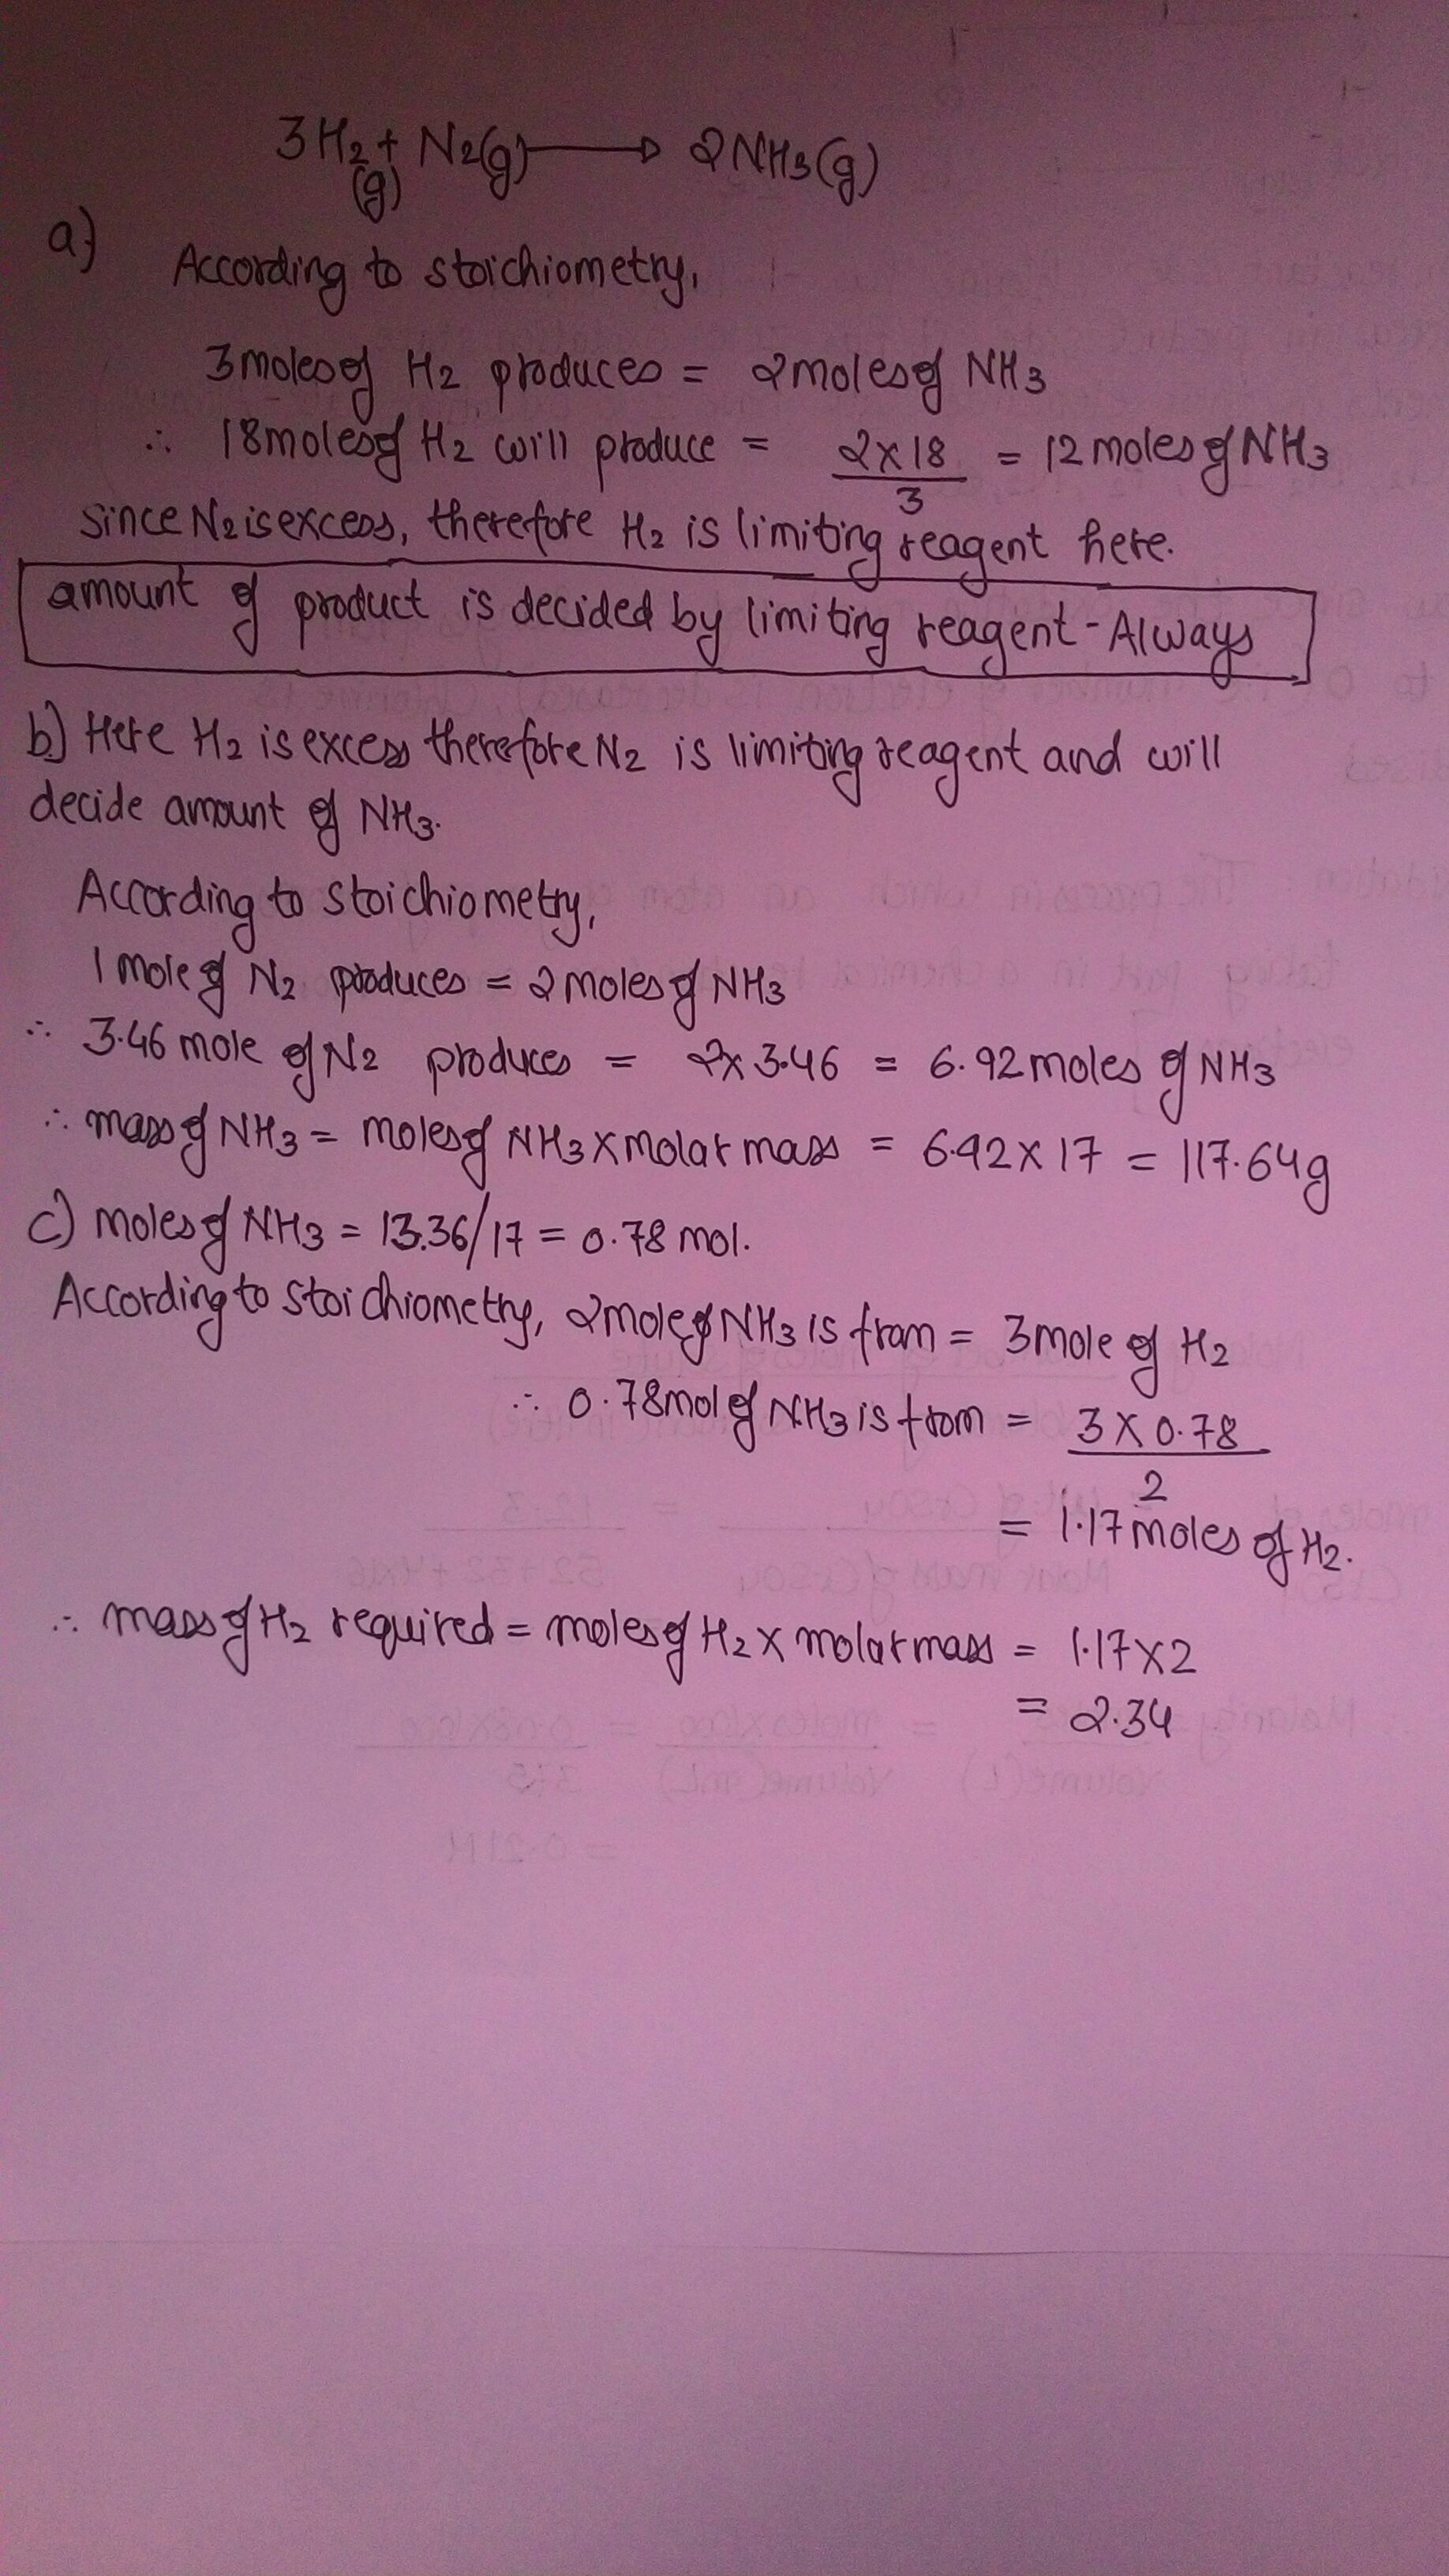 3H2(g) + N2(g) → 2NH3(g)
a)
According to stoichiometry,
3moles of H2 produces = 2moles of NH3
∴ 18moles of H2 will produce = 2×18/3 = 12 moles of NH3
since N2 is excess, therefore H2 is limiting reagent here.
amount of product is decided by limiting reagent - Always
b) Here H2 is excess therefore N2 is limiting reagent and will
decide amount of NH3.
According to stoichiometry,
1 mole of N2 produces = 2 moles of NH3
∴ 3.46 mole of N2 produces = 2×3.46 = 6.92 moles of NH3
∴ mass of NH3 = moles of NH3 × molar mass = 6.92×17 = 117.64g
c) moles of NH3 = 13.36/17 = 0.78 mol.
According to stoichiometry, 2mole of NH3 is from = 3mole of H2
∴ 0.78mol of NH3 is from = 3×0.78/2
= 1.17 moles of H2.
∴ mass of H2 required = moles of H2 × molar mass = 1.17×2
= 2.34